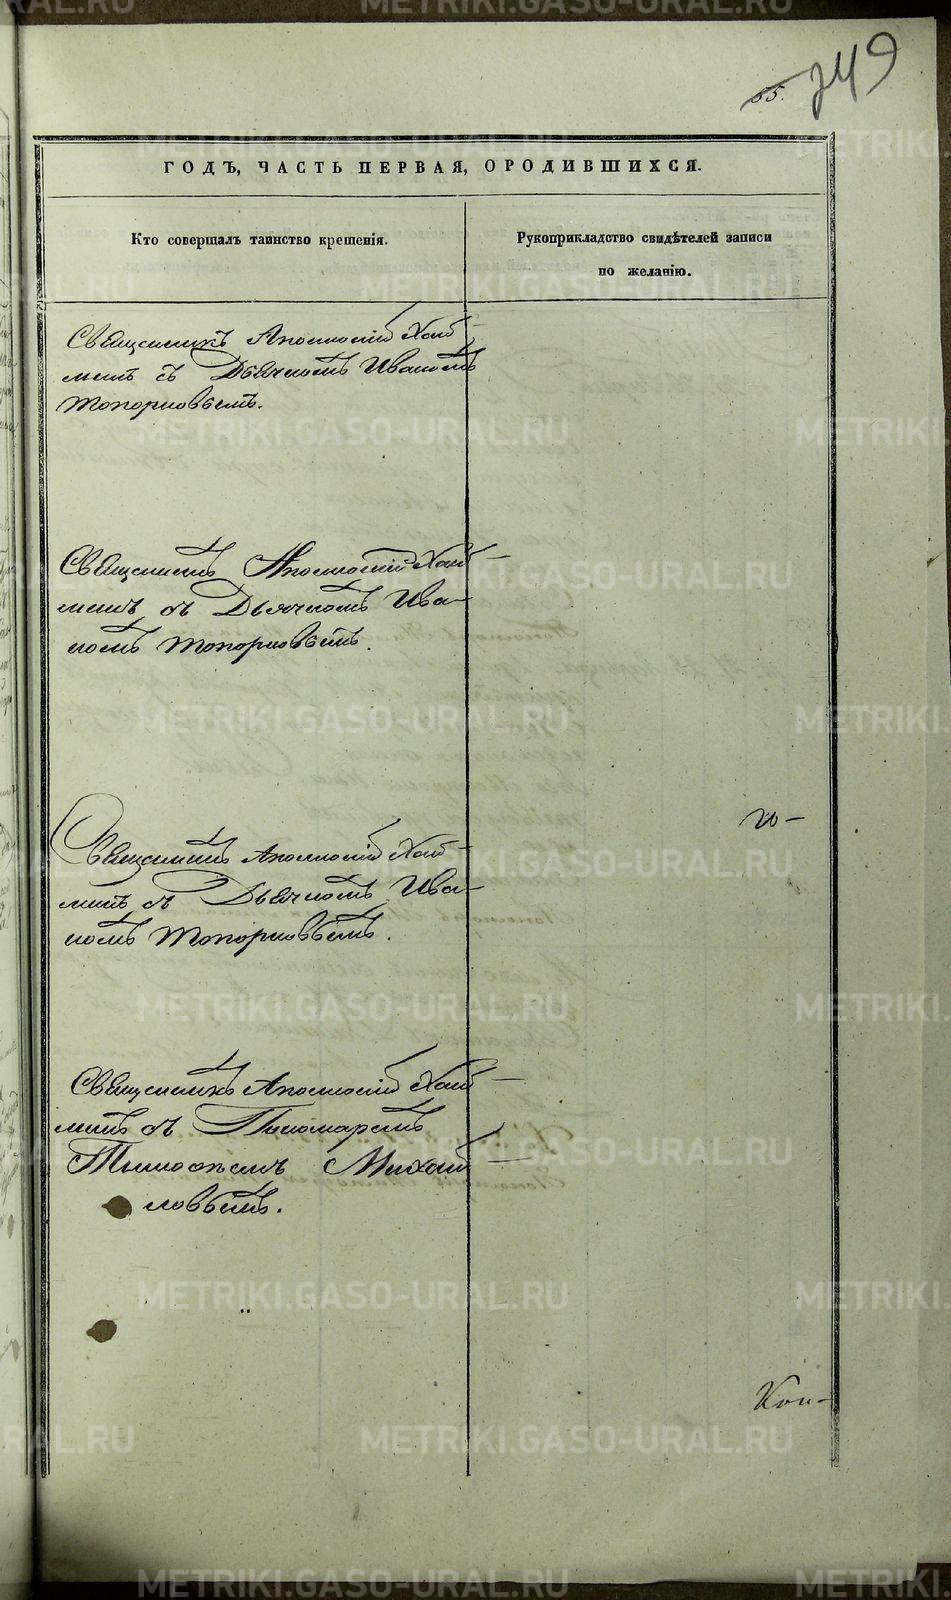 55. 249
ГОДЪ, ЧАСТЬ ПЕРВАЯ, ОРОДИВШИХСЯ.
Кто совершалъ таинство крещенія.
Рукоприкладство свидѣтелей записи
по желанію.
Священникъ Аполлосій
съ Дьячкомъ Иваномъ
Топорковымъ.
Священникъ Аполлосій
съ Дьячкомъ Ива-
номъ Топорковымъ.
Священникъ Аполлосій
съ Дьячкомъ Ива-
номъ Топорковымъ.
Священникъ Аполлосій
съ Пономаремъ
Михай
ловымъ.
METRIKI.GASO-URAL.RU